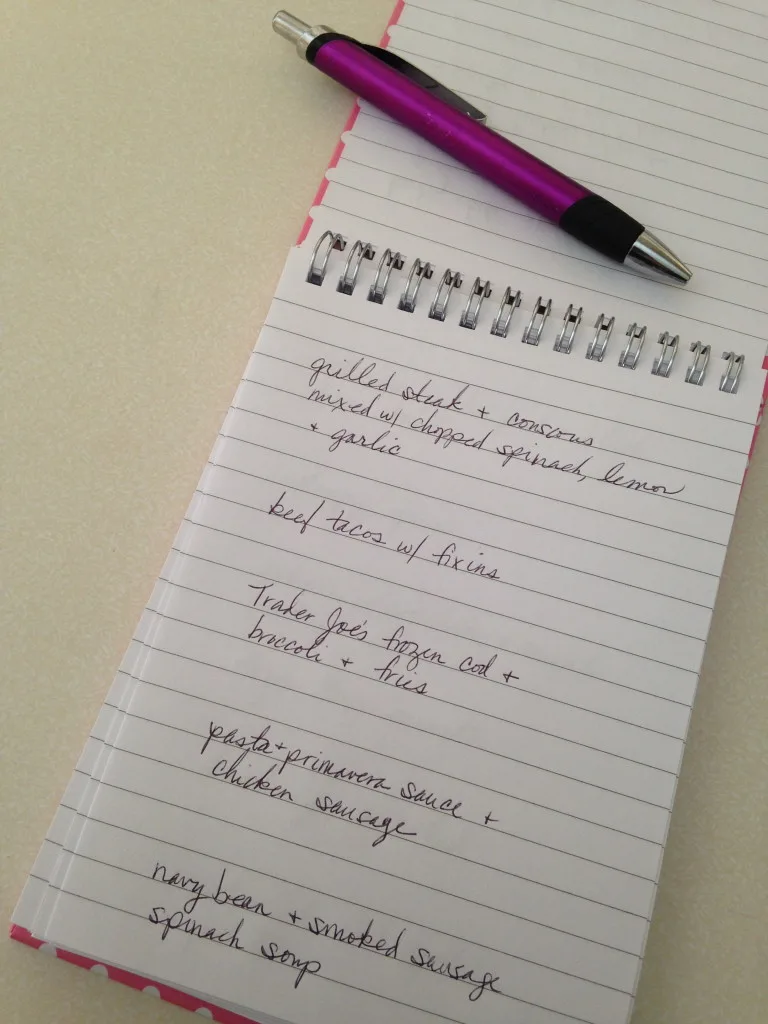 grilled steak + conscous
mixed w/ chopped spinach, lemon
+ garlic
beef tacos w/ fixins
Trader Joe's frozen cod +
broccoli + fries
pasta + primavera sauce +
chicken sausage
navy bean + smoked sausage
spinach soup